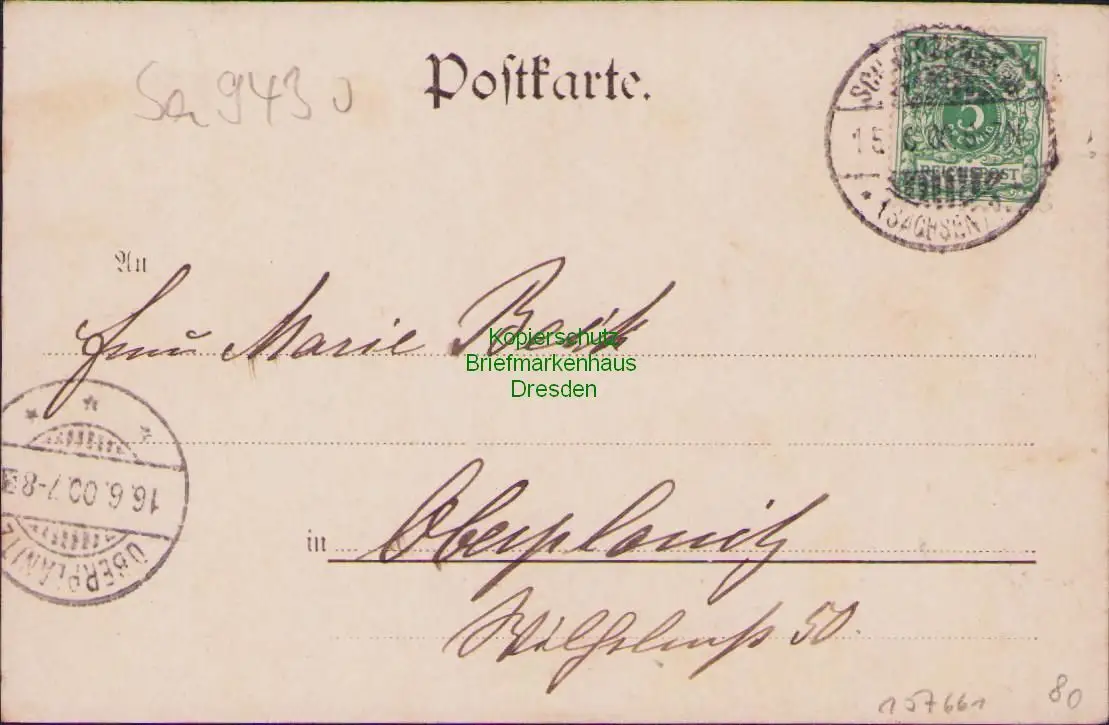 Postkarte.
Sa 943
5
PFENNIG
REICHSPOST
15 6 00 5-
* (SACHSEN)
An
Frau Marie
Kopierschutz
Briefmarkenhaus
Dresden
16.6.00.7-8
OBERPLANITZ
in Oberplanitz
50.
157661
80